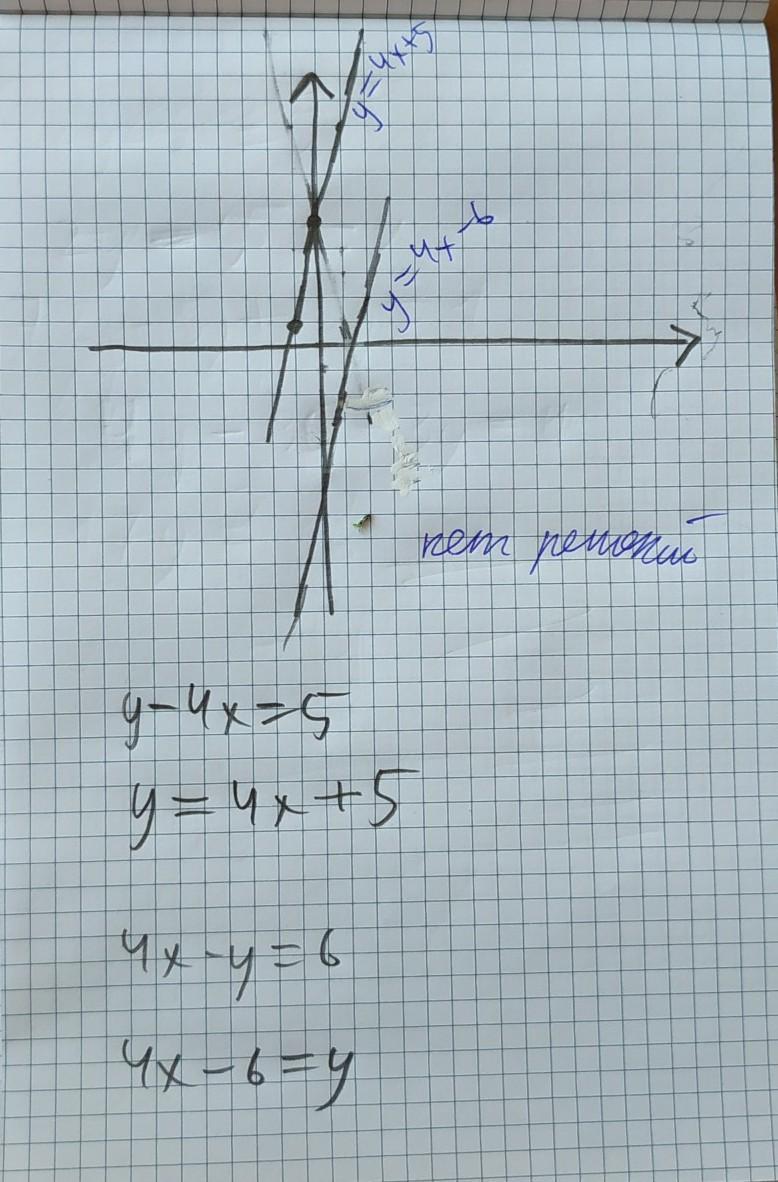 y=4x+5
y=4x-6
нет решений
y-4x=5
y=4x+5
4x-y=6
4x-6=y